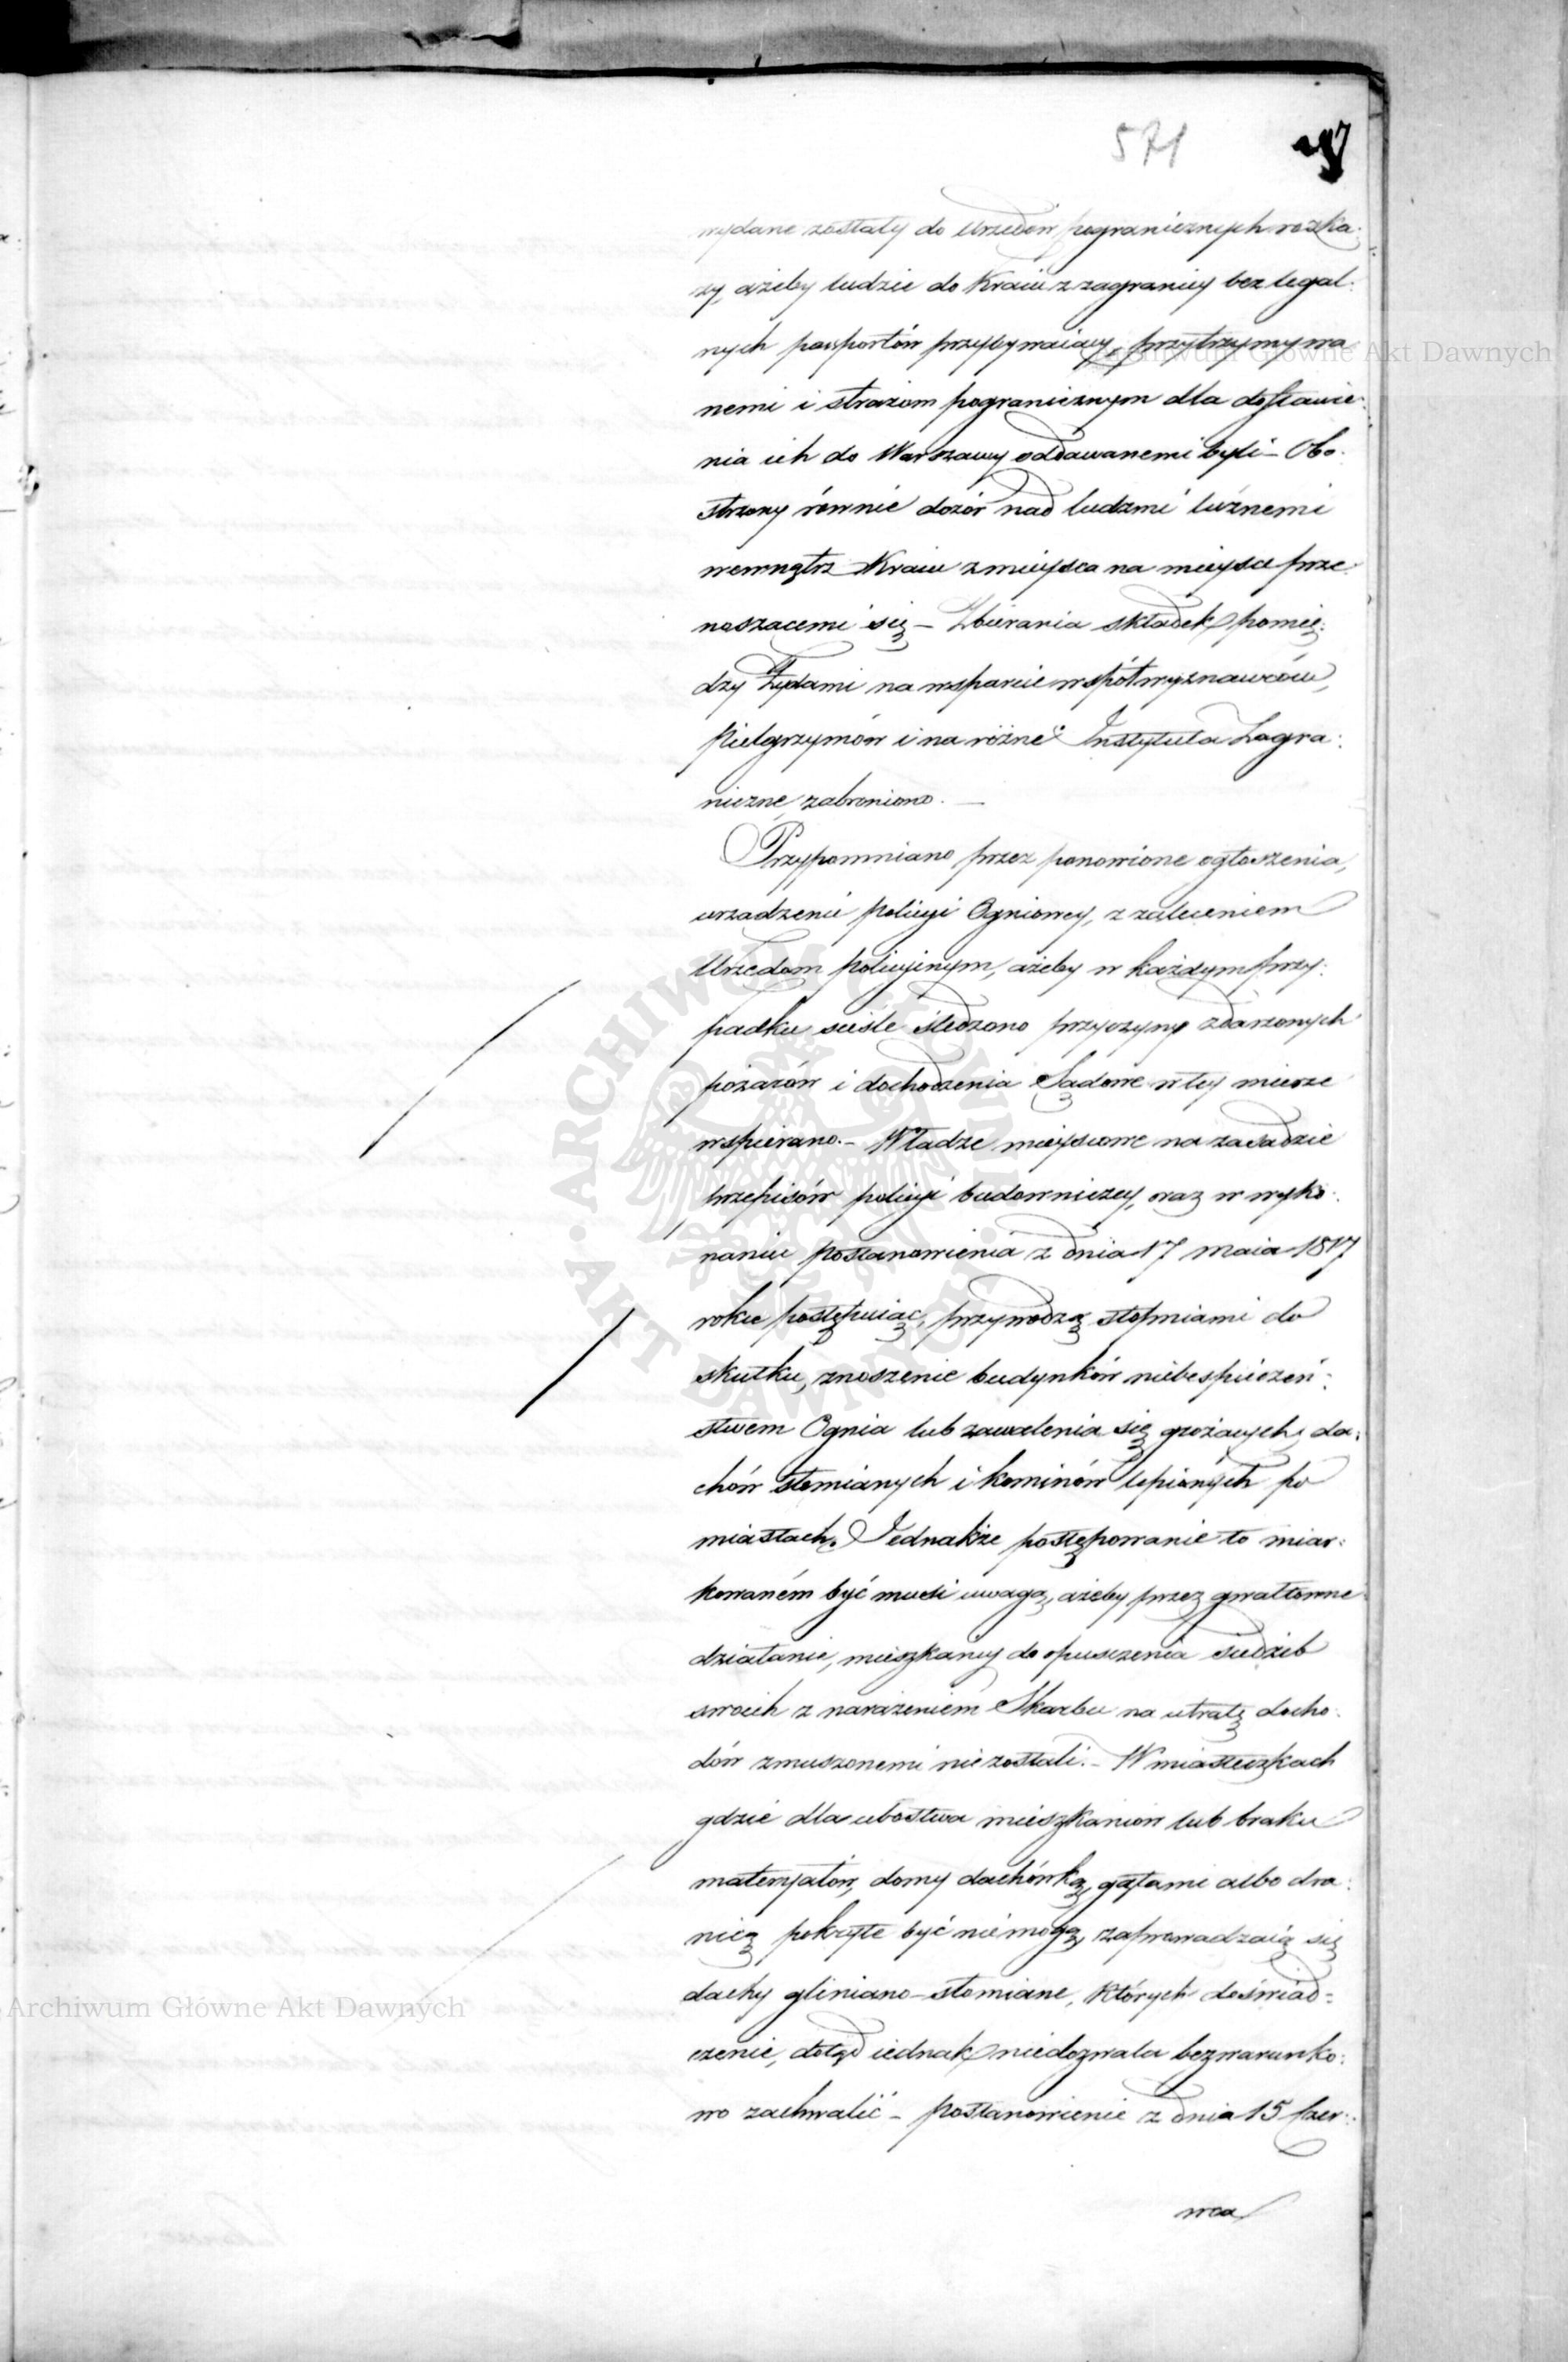 571
wydane zostały do Urzędów pogranicznych rozka:
zy, ażeby ludzie do Kraiu z zagranicy bez legal:
nych paszportów przybywaiący, przytrzymywa
Archiwum Główne Akt Dawnych
nemi i strażom pogranicznym dla dostawie:
nia ich do Warszawy oddawanemi byli – Obo:
strzony równie dozór nad ludźmi luźnemi
wewnątrz Kraiu z mieysca na mieysce prze:
noszącemi się – Zbierania składek pomię:
dzy Żydami na wsparcie współwyznawców,
pielgrzymów i na różne Instytuta Zagra:
niczne, zabroniono. —
Przypomniano przez ponowione ogłoszenia,
urządzenie policyi Ogniowey, z zaleceniem
Urzędom policyinym, ażeby w każdym przy:
padku ściśle śledzono przyczyny zdarzonych
pożarów i dochodzenia Sądowe w tey mierze
wspierano. – Władze mieyscowe na zasadzie
przepisów policyi budowniczey, oraz w wyko:
naniu postanowienia z dnia 17 maia 1817
roku postępuiąc, przywodzą stopniami do
skutku, znoszenie budynków niebespieczeń:
stwem Ognia lub zawalenia się grożących, da:
chów słomianych i kominów lepionych po
miastach. Jednakże postępowanie to miar:
kowaném być musi uwagą, ażeby przez gwałtowne
działanie, mieszkańcy do opuszczenia siedzib
swoich z narażeniem Skarbu na utratę docho:
dów zmuszonemi nie zostali. – W miasteczkach
gdzie dla ubostwa mieszkańców lub braku
materyałów, domy dachówką, gątami albo dra:
nicą pokryte być nie mogą, zaprowadzaią się
dachy gliniano-słomiane, których doświad=
Archiwum Główne Akt Dawnych
czenie, dotąd iednak niedozwala bezwarunko:
wo zachwalić – postanowienie z dnia 15 Czer:
wca
ARCHIWUM GŁÓWNE · AKT DAWNYCH ·